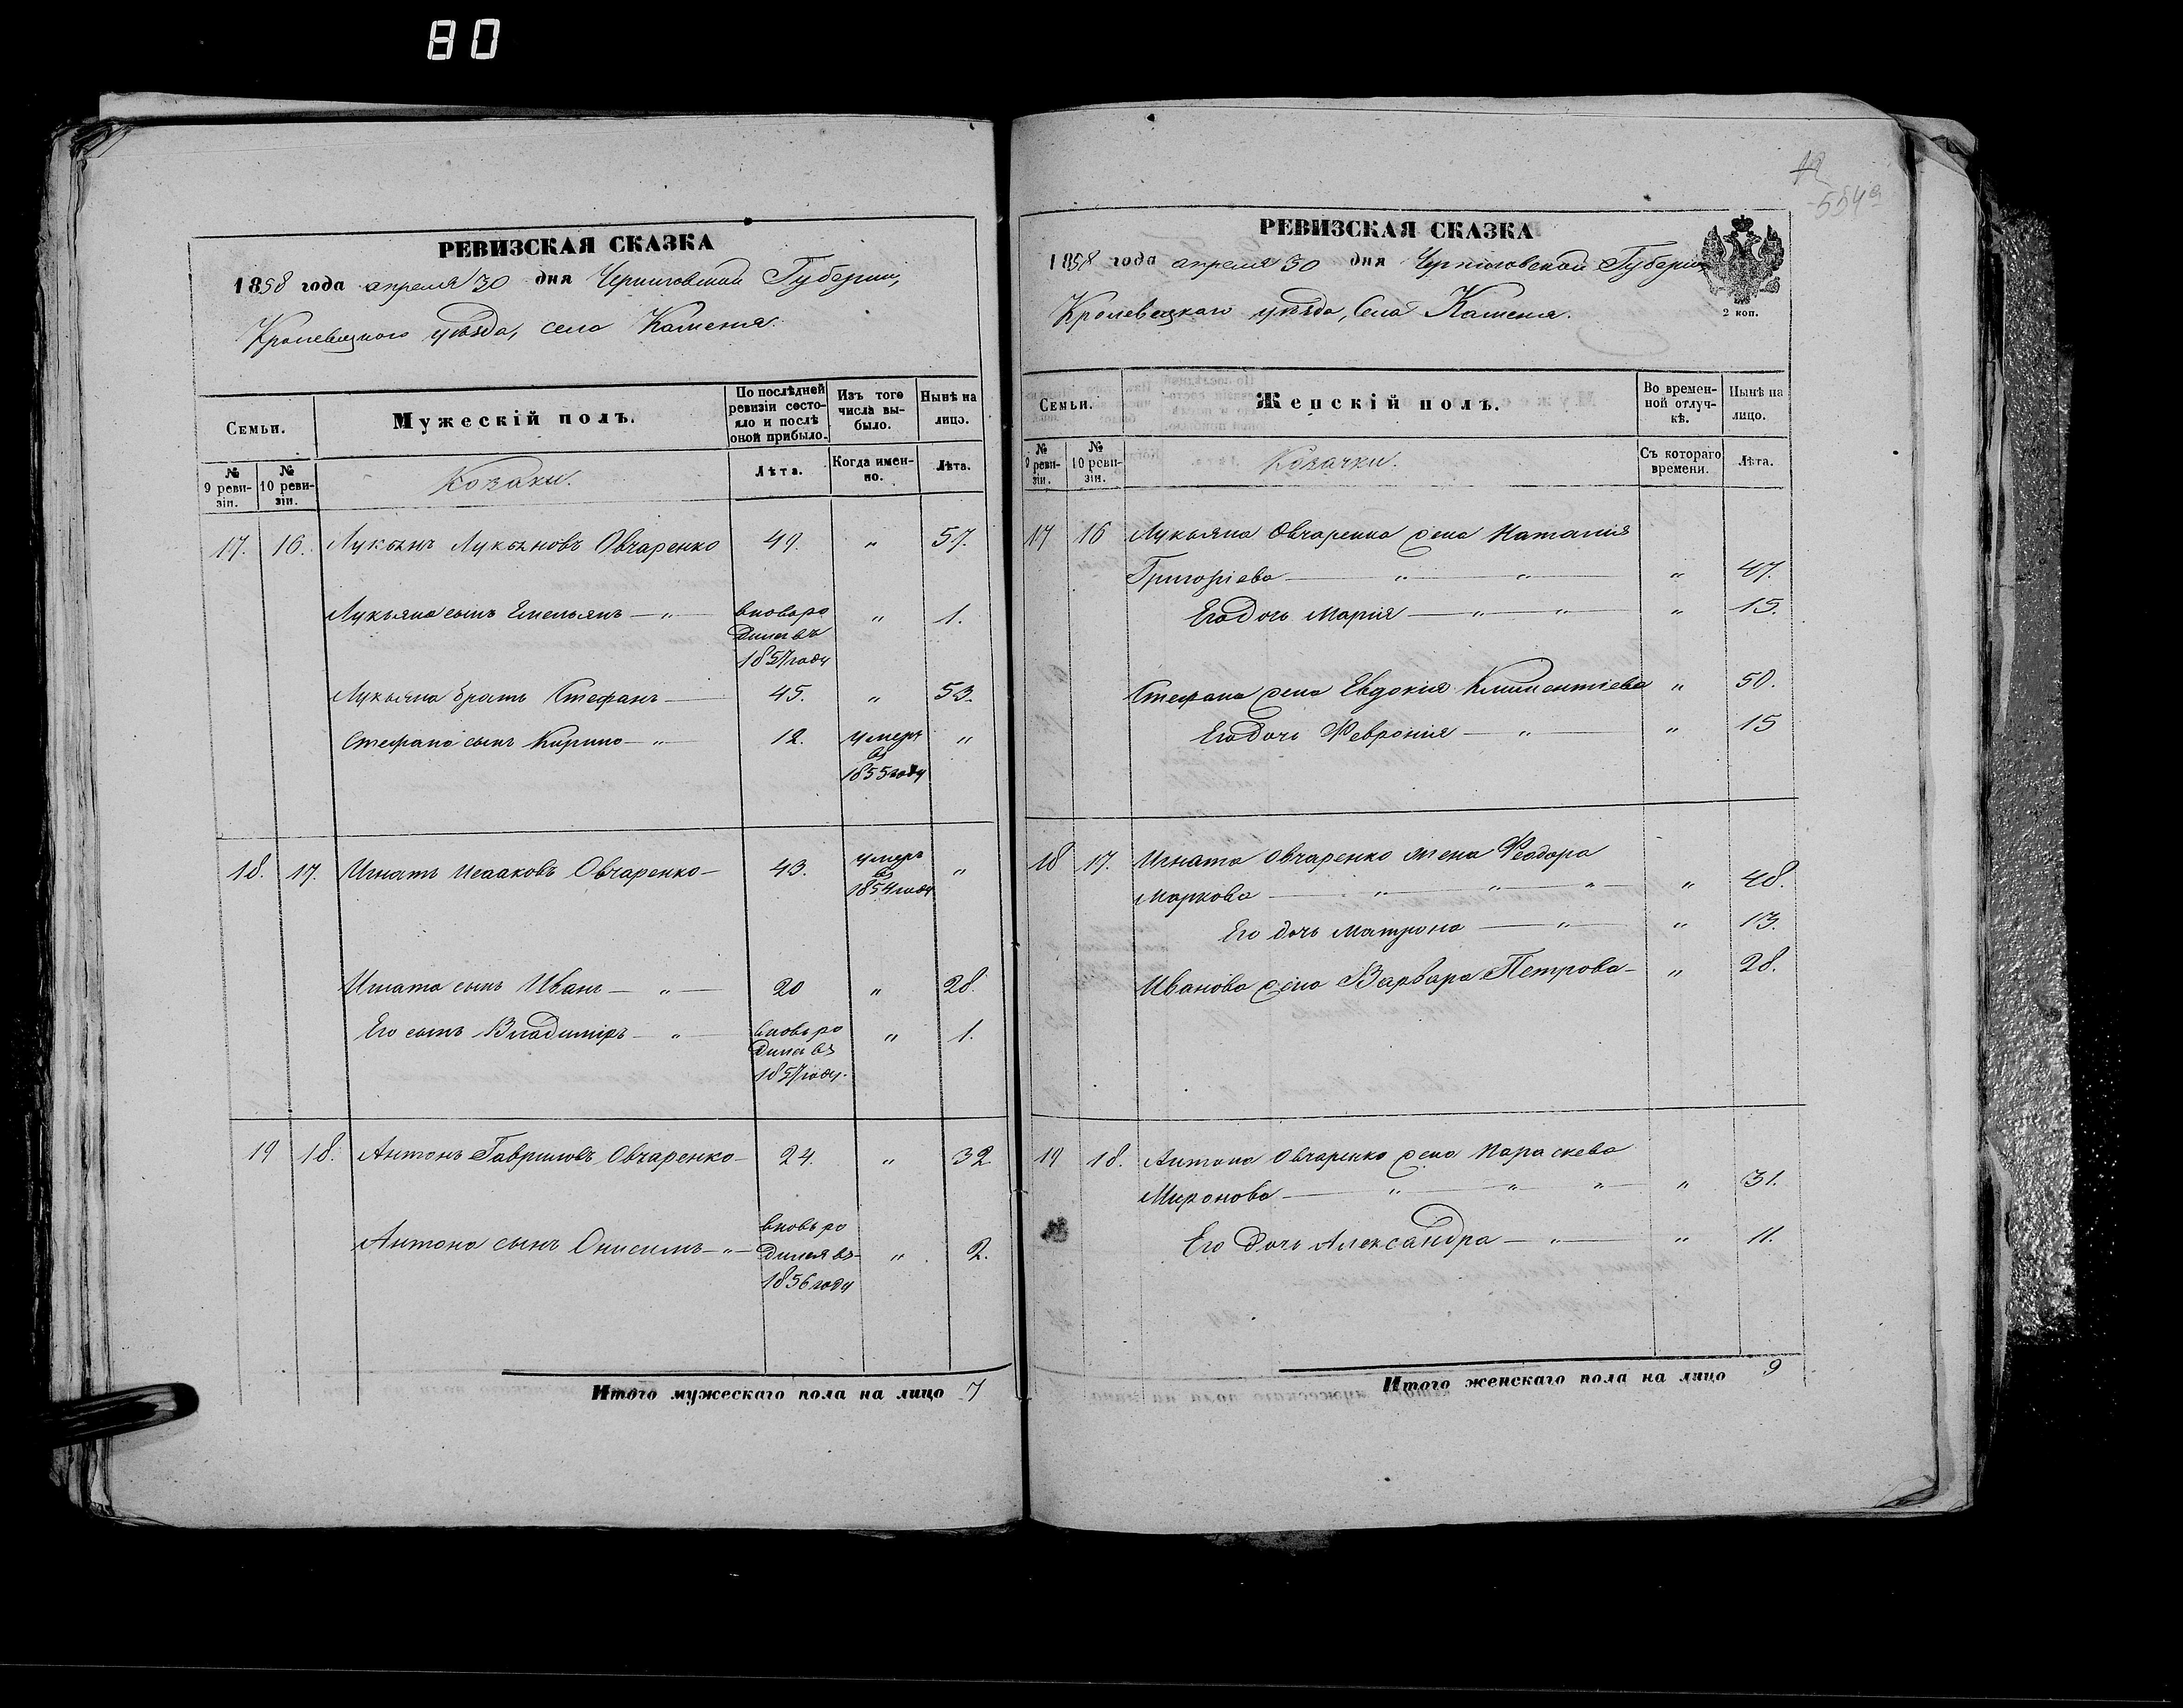 80
РЕВИЗСКАЯ СКАЗКА
1858 года апреля 30 дня Черниговской Губерніи,
Кролевецкого уѣзда, села Каменя.
Семьи.
Мужескій полъ.
По послѣдней ревизіи состояло и послѣ оной прибыло.
Изъ того числа выбыло.
Нынѣ на лицо.
№ 9 ревизіи.
№ 10 ревизіи.
Козаки.
Лѣта.
Когда именно.
Лѣта.
17. 16. Лукьянъ Лукьяновъ Овчаренко 49. " 57.
Лукьяна сынъ Емельянъ — " — вновь ро " 1.
дился въ
1857 году
Лукьяна братъ Стефанъ — 45. " 53.
Стефана сынъ Кирило — " — 12. умеръ "
въ
1855 году
18. 17. Игнатъ Исааковъ Овчаренко — 43. умеръ "
въ
1854 году
Игната сынъ Иванъ — " — 20 " 28.
Его сынъ Владиміръ — " — вновь ро " 1.
дился въ
1857 году.
19 18. Антонъ Гавриловъ Овчаренко — 24. " 32.
Антона сынъ Онисимъ — " — вновь ро " 2.
дился въ
1856 году
Итого мужескаго пола на лицо 7
554
РЕВИЗСКАЯ СКАЗКА
1858 года апреля 30 дня Черниговской Губерніи
Кролевецкаго уѣзда, Села Каменя.
2 коп.
Семьи.
Женскій полъ.
Во временной отлучкѣ.
Нынѣ на лицо.
№ 9 ревизіи.
№ 10 ревизіи.
Козачки.
Съ котораго времени.
Лѣта.
17 16 Лукьяна Овчаренка жена Наталия
Григоріева — " — " — " 47.
Его дочь Марія — " — " — " 15.
Стефана жена Евдокия Климентіева " 50.
Его дочь Феврония — " — " 15
18 17. Игната Овчаренко жена Феодора
Маркова — " — " — " — " 48.
Его дочь Матрона — " — " 13.
Иванова жена Варвара Петрова — " 28.
19 18. Антона Овчаренко жена Параскева
Миронова — " — " — " — " 31.
Его дочь Александра — " — " 11.
Итого женскаго пола на лицо 9